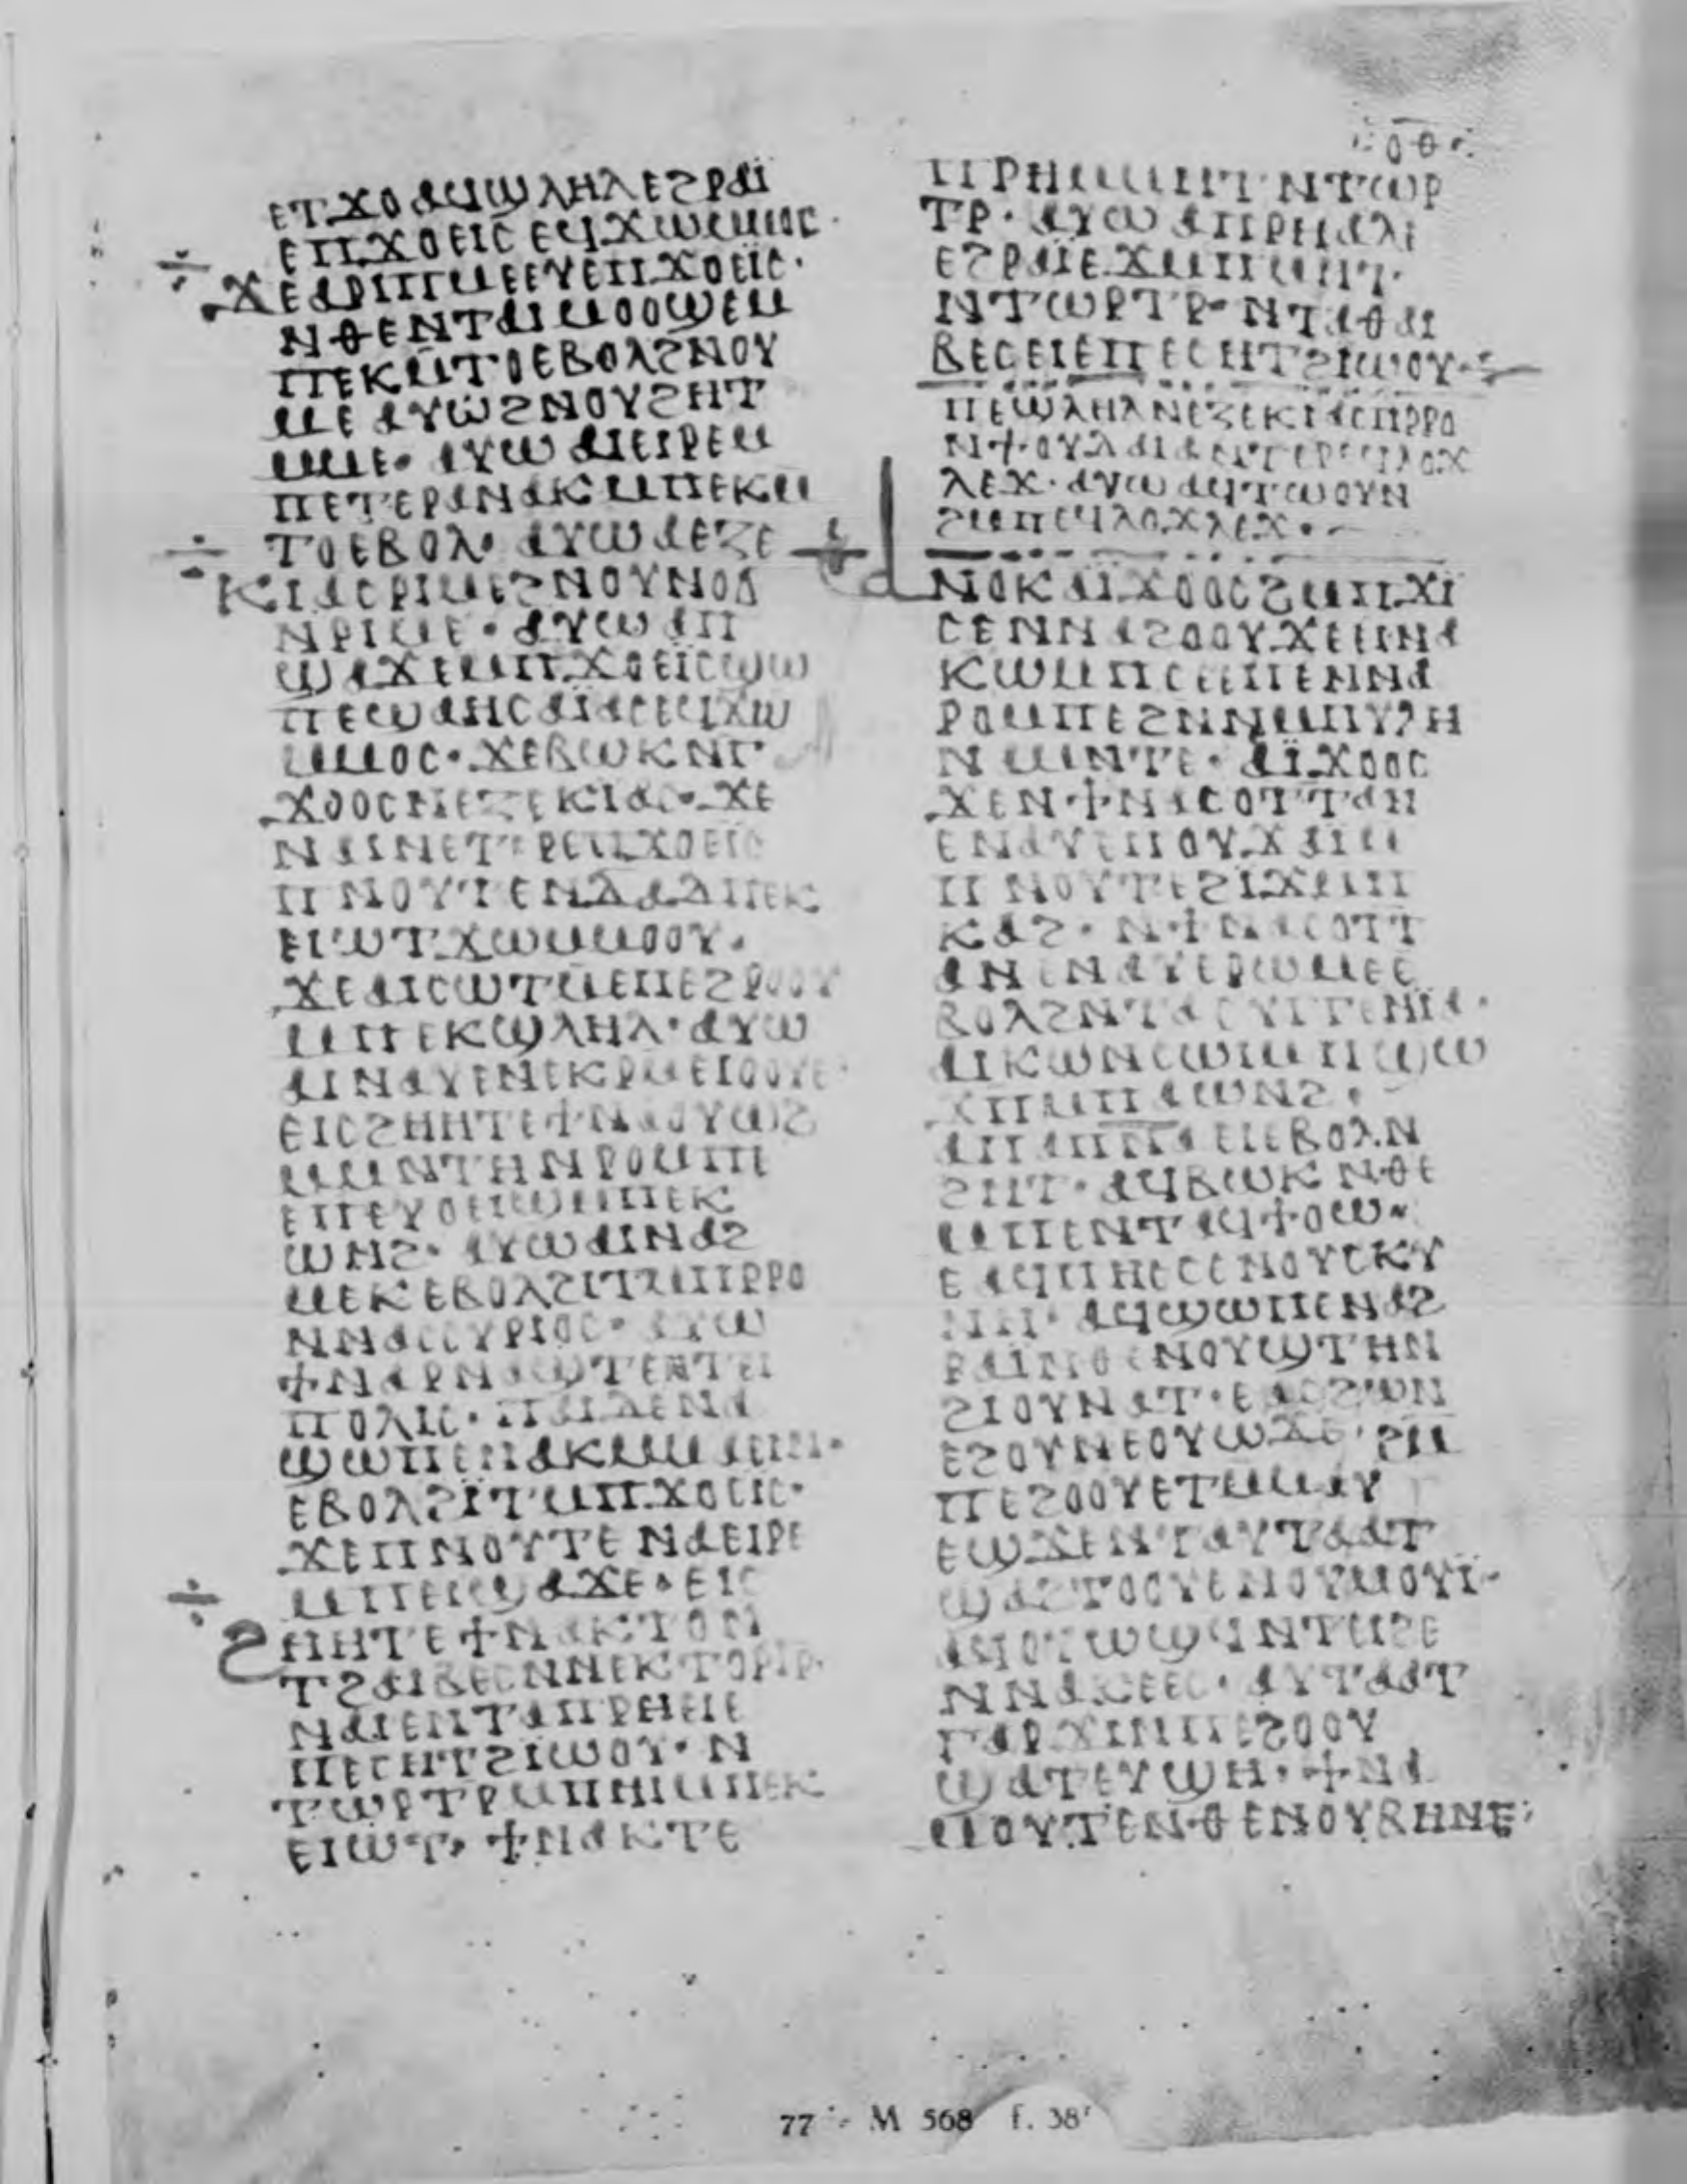 ⲟⲑ
ⲉⲧϫⲟ ⲁϥϣⲗⲏⲗ ⲉϩⲣⲁⲓ̈
ⲉⲡϫⲟⲉⲓⲥ ⲉϥϫⲱ ⲙⲙⲟⲥ·
ϫⲉ ⲁⲣⲓⲡⲙⲉⲉⲩⲉ ⲡϫⲟⲉⲓⲥ·
ⲛⲑⲉ ⲛⲧⲁⲓⲙⲟⲟϣⲉ ⲙ
ⲡⲉⲕⲙⲧⲟ ⲉⲃⲟⲗ ϩⲛ ⲟⲩ
ⲙⲉ ⲁⲩⲱ ϩⲛ ⲟⲩϩⲏⲧ
ⲙⲙⲉ· ⲁⲩⲱ ⲁⲓⲉⲓⲣⲉ ⲙ
ⲡⲉⲧⲉⲣⲁⲛⲁⲕ ⲙⲡⲉⲕⲙ
ⲧⲟ ⲉⲃⲟⲗ· ⲁⲩⲱ ⲁⲉⲍⲉ
ⲕⲓⲁⲥ ⲣⲓⲙⲉ ϩⲛ ⲟⲩⲛⲟϭ
ⲛⲣⲓⲙⲉ· ⲁⲩⲱ ⲁⲡ
ϣⲁϫⲉ ⲙⲡϫⲟⲉⲓⲥ ϣⲱ
ⲡⲉ ϣⲁ ⲏⲥⲁⲓ̈ⲁⲥ ⲉϥϫⲱ
ⲙⲙⲟⲥ· ϫⲉ ⲃⲱⲕ ⲛⲅ
ϫⲟⲟⲥ ⲛⲉⲍⲉⲕⲓⲁⲥ· ϫⲉ
ⲛⲁⲓ ⲛⲉⲧⲉⲣⲉ ⲡϫⲟⲉⲓⲥ
ⲡⲛⲟⲩⲧⲉ ⲛⲇⲁⲇ ⲡⲉⲕ
ⲉⲓⲱⲧ ϫⲱ ⲙⲙⲟⲟⲩ·
ϫⲉ ⲁⲓⲥⲱⲧⲙ ⲉⲡⲉϩⲣⲟⲟⲩ
ⲙⲡⲉⲕϣⲗⲏⲗ· ⲁⲩⲱ
ⲁⲓⲛⲁⲩ ⲉⲛⲉⲕⲣⲙⲉⲓⲟⲟⲩⲉ·
ⲉⲓⲥϩⲏⲏⲧⲉ ϯⲛⲁⲟⲩⲱϩ
ⲙⲙⲛⲧⲏ ⲛⲣⲟⲙⲡⲉ
ⲉⲡⲉⲩⲟⲉⲓϣ ⲙⲡⲉⲕ
ⲱⲛϩ· ⲁⲩⲱ ϯⲛⲁⲛⲁϩ
ⲙⲉⲕ ⲉⲃⲟⲗ ϩⲓⲧⲙ ⲡⲣⲣⲟ
ⲛⲛⲁⲥⲥⲩⲣⲓⲟⲥ· ⲁⲩⲱ
ϯⲛⲁⲣⲛⲁϣⲧⲉ ⲛⲧⲉⲓ
ⲡⲟⲗⲓⲥ· ⲡⲁⲓ ⲇⲉ ⲛⲁ
ϣⲱⲡⲉ ⲛⲁⲕ ⲙⲙⲁⲉⲓⲛ·
ⲉⲃⲟⲗ ϩⲓⲧⲙ ⲡϫⲟⲉⲓⲥ·
ϫⲉ ⲡⲛⲟⲩⲧⲉ ⲛⲁⲉⲓⲣⲉ
ⲙⲡⲉⲓϣⲁϫⲉ· ⲉⲓⲥ
ϩⲏⲏⲧⲉ ϯⲛⲁⲕⲧⲟ ⲛ
ⲧϩⲁⲓⲃⲉⲥ ⲛⲛⲉⲕⲧⲟⲣⲧⲣ·
ⲛⲁⲓ ⲉⲛⲧⲁ ⲡⲣⲏ ⲉⲓ ⲉ
ⲡⲉⲥⲏⲧ ϩⲓⲱⲟⲩ· ⲛ
ⲧⲱⲣⲧⲣ ⲙⲡⲏⲓ ⲙⲡⲉⲕ
ⲉⲓⲱⲧ· ϯⲛⲁⲕⲧⲉ
ⲡⲣⲏ ⲙⲙⲏⲧ ⲛⲧⲱⲣ
ⲧⲣ· ⲁⲩⲱ ⲁⲡⲣⲏ ⲁⲗⲉ
ⲉϩⲣⲁⲓ̈ ⲉϫⲙ ⲡⲙⲏⲧ·
ⲛⲧⲱⲣⲧⲣ· ⲛⲧⲁⲑⲁⲓ
ⲃⲉⲥ ⲉⲓ ⲉⲡⲉⲥⲏⲧ ϩⲓⲱⲟⲩ·
ⲡⲉϣⲗⲏⲗ ⲛⲉⲍⲉⲕⲓⲁⲥ ⲡⲣⲣⲟ
ⲛϯⲟⲩⲇⲁⲓⲁ ⲛⲧⲉⲣⲉϥⲗⲟϫ
ⲗⲉϫ· ⲁⲩⲱ ⲁϥⲧⲱⲟⲩⲛ
ϩⲙ ⲡⲉϥⲗⲟϫⲗⲉϫ·
ⲁⲛⲟⲕ ⲁⲓ̈ϫⲟⲟⲥ ϩⲙ ⲡϫⲓ
ⲥⲉ ⲛⲛⲁϩⲟⲟⲩ ϫⲉ ϯⲛⲁ
ⲕⲱ ⲙⲡⲥⲉⲉⲡⲉ ⲛⲛⲁ
ⲣⲟⲙⲡⲉ ϩⲛ ⲙⲡⲩⲗⲏ
ⲛⲁⲙⲛⲧⲉ· ⲁⲓ̈ϫⲟⲟⲥ
ϫⲉ ⲛϯⲛⲁⲥⲟⲧⲧ ⲁⲛ
ⲉⲛⲁⲩ ⲉⲡⲟⲩϫⲁⲓ ⲙ
ⲡⲛⲟⲩⲧⲉ ϩⲓϫⲙ ⲡ
ⲕⲁϩ· ⲛϯⲛⲁⲥⲟⲧⲧ
ⲁⲛ ⲉⲛⲁⲩ ⲉⲣⲱⲙⲉ ⲉ
ⲃⲟⲗ ϩⲛ ⲧⲁⲥⲩⲅⲅⲉⲛⲓⲁ·
ⲁⲓⲕⲱ ⲛⲥⲱⲓ ⲙⲡϣⲱ
ϫⲡ ⲙⲡⲁⲱⲛϩ·
ⲁⲡⲁⲡⲛⲁ ⲉⲓ ⲉⲃⲟⲗ ⲛ
ϩⲏⲧ· ⲁϥⲃⲱⲕ ⲛⲑⲉ
ⲙⲡⲉⲛⲧⲁϥϯⲟⲩⲱ
ⲉⲁϥⲡⲏⲥⲥⲉ ⲛⲟⲩⲥⲕⲩ
ⲛⲏ· ⲁϥϣⲱⲡⲉ ⲛⲁϩ
ⲣⲁⲓ̈ ⲛⲑⲉ ⲛⲟⲩϣⲧⲏⲛ
ϩⲓ ⲟⲩⲛⲁⲧ· ⲉⲁⲥϩⲱⲛ
ⲉϩⲟⲩⲛ ⲉⲟⲩⲱϫⲉ· ϩⲙ
ⲡⲉϩⲟⲟⲩ ⲉⲧⲙⲙⲁⲩ
ⲉϣϫⲉ ⲛⲧⲁⲩⲧⲁⲁⲧ
ϣⲁϩⲧⲟⲟⲩⲉ ⲛⲟⲩⲙⲟⲩⲓ·
ⲁϥⲟⲩⲱϣϥ ⲛⲧⲉⲓϩⲉ
ⲛⲛⲁⲕⲉⲉⲥ· ⲁⲩⲧⲁⲁⲧ
ⲅⲁⲣ ϫⲓⲛ ⲡⲉϩⲟⲟⲩ
ϣⲁ ⲧⲉⲩϣⲏ· ϯⲛⲁ
ⲙⲟⲩⲧⲉ ⲛⲑⲉ ⲛⲟⲩⲃⲏⲛⲉ·
77 - M 568 f. 38r